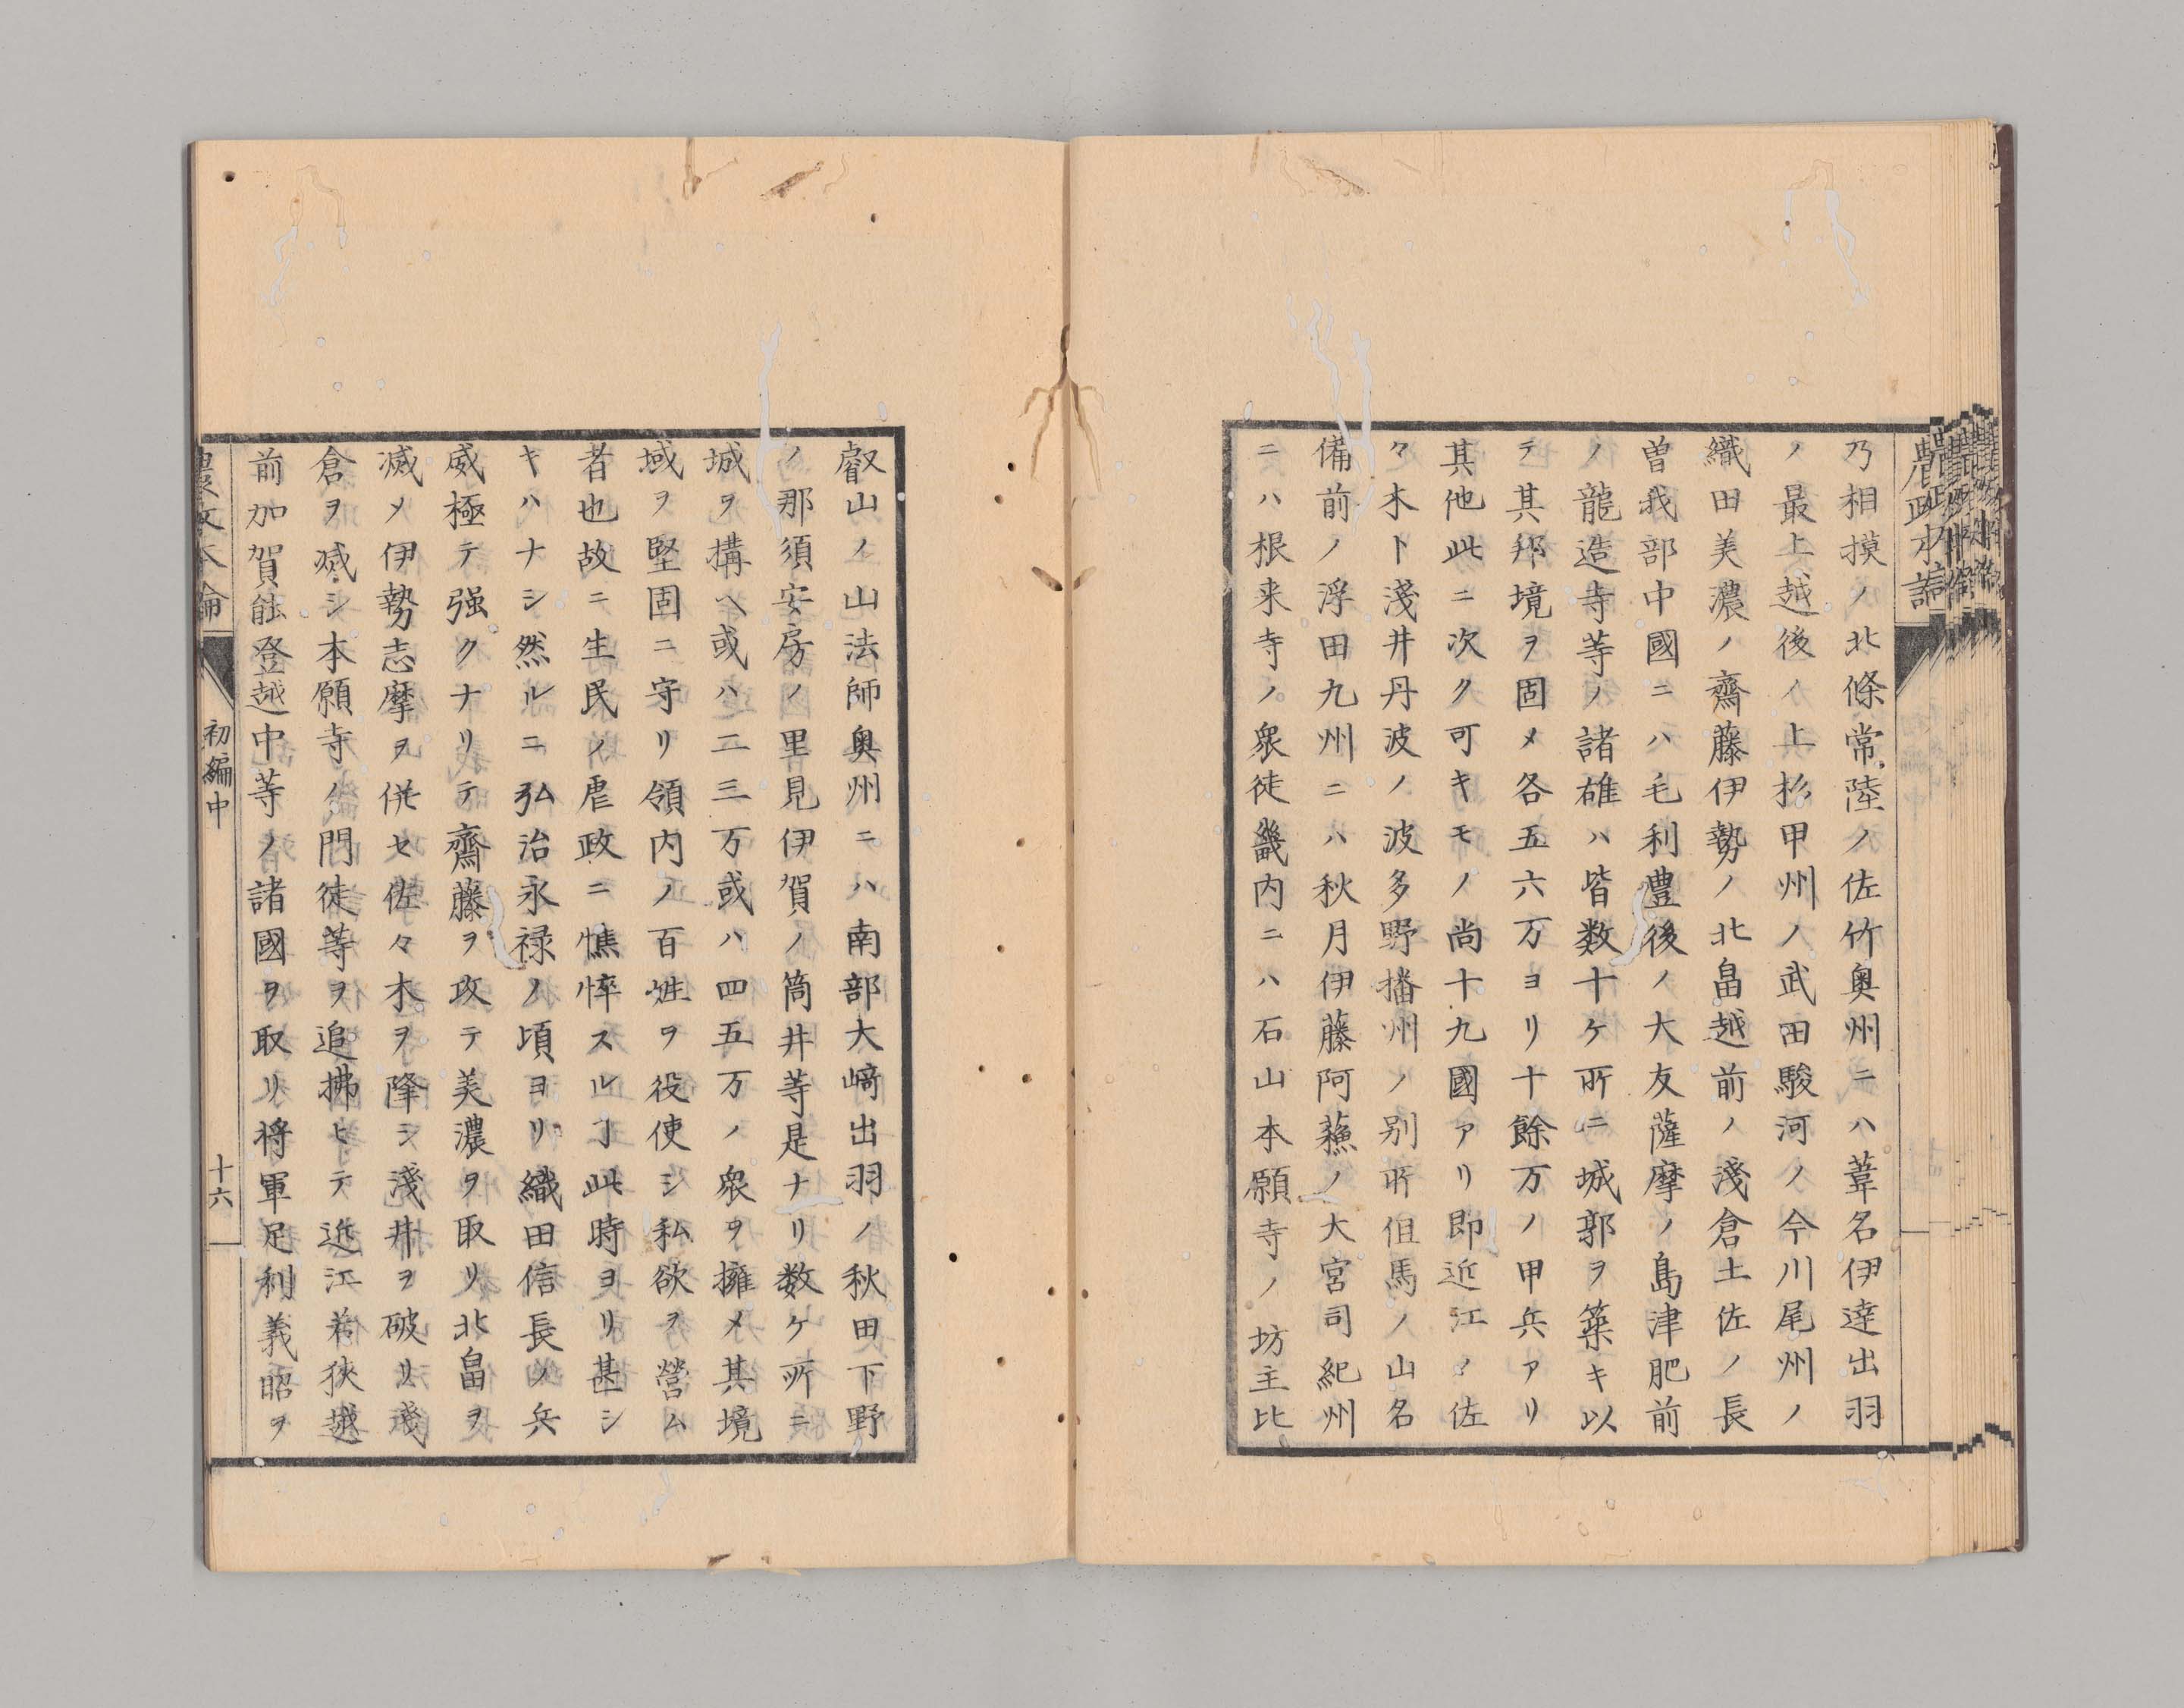 乃相摸ノ北條常陸ノ佐竹奥州ニハ葦名伊達出羽
ノ最上越後ノ上杉甲州ノ武田駿河ノ今川尾州ノ
織田美濃ノ齋藤伊勢ノ北畠越前ノ淺倉土佐ノ長
曽我部中國ニハ毛利豊後ノ大友薩摩ノ島津肥前
ノ龍造寺等ノ諸雄ハ皆数十ケ所ニ城郭ヲ築キ以
テ其邦境ヲ固メ各五六万ヨリ十餘万ノ甲兵アリ
其他此ニ次ク可キモノ尚十九國アリ即近江ノ佐
々木ト淺井丹波ノ波多野播州ノ別所但馬ノ山名
備前ノ浮田九州ニハ秋月伊藤阿蘓ノ大宮司紀州
ニハ根来寺ノ衆徒畿内ニハ石山本願寺ノ坊主比
叡山ノ山法師奥州ニハ南部大﨑出羽ノ秋田下野
ノ那須安房ノ里見伊賀ノ筒井等是ナリ数ケ所ニ
城ヲ搆ヘ或ハ二三万或ハ四五万ノ衆ヲ擁メ其境
域ヲ堅固ニ守リ領内ノ百姓ヲ役使シ私欲ヲ營ム
者也故ニ生民ノ虐政ニ憔悴スルヿ此時ヨリ甚シ
キハナシ然ルニ弘治永禄ノ頃ヨリ織田信長ノ兵
威極テ强クナリテ齋藤ヲ攻テ美濃ヲ取リ北畠ヲ
滅メ伊勢志摩ヲ併セ佐々木ヲ降シ淺井ヲ破リ淺
倉ヲ滅シ本願寺ノ門徒等ヲ追拂ヒテ近江若狹越
前加賀能登越中等ノ諸國ヲ取リ将軍足利義昭ヲ
農政本論
初編中
十六